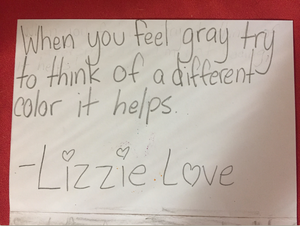 When you feel gray try
to think of a different
color it helps.
-Lizzie Love